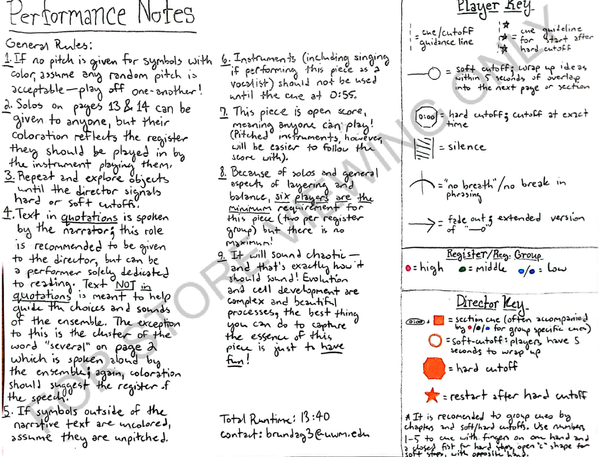 Performance Notes
General Rules:
1. If no pitch is given for symbols with
color, assume any random pitch is
acceptable — play off one-another!
2. Solos on pages 13 & 14 can be
given to anyone, but their
coloration reflects the register
they should be played in by
the instrument playing them.
3. Repeat and explore objects
until the director signals
hard or soft cutoff.
4. Text in quotations is spoken
by the narrator; this role
is recommended to be given
to the director, but can be
a performer solely dedicated
to reading. Text NOT in
quotations is meant to help
guide the choices and sounds
of the ensemble. The exception
to this is the cluster of the
word "several" on page 2
which is spoken aloud by
the ensemble; again, coloration
should suggest the register of
the speech.
5. If symbols outside of the
narrative text are uncolored,
assume they are unpitched.
6. Instruments (including singing
if performing this piece as a
vocalist) should not be used
until the cue at 0:55.
7. This piece is open score,
meaning anyone can play!
(Pitched instruments, however,
will be easier to follow the
score with).
8. Because of solos and general
aspects of layering and
balance, six players are the
minimum requirement for
this piece (two per register
group) but there is no
maximum!
9. It will sound chaotic —
and that's exactly how it
should sound! Evolution
and cell development are
complex and beautiful
processes, the best thing
you can do to capture
the essence of this
piece is just to have
fun!
Total Runtime: 13:40
contact: brunday3@uwm.edu
Player Key
= cue/cutoff
guidance line
= cue guideline
for start after
hard cutoff
= soft cutoff; wrap up ideas
within 5 seconds of overlap
into the next page or section
0:00 = hard cutoff; cutoff at exact
time
= silence
= "no breath"/no break in
phrasing
= fade out; extended version
of
Register/Reg. Group
= high = middle = low
Director Key
0:00 + = section cue (often accompanied
by for group specific cues)
= soft-cutoff: players have 5
seconds to wrap up
= hard cutoff
= restart after hard cutoff
* It is recomended to group cues by
chapters and soft/hard cutoffs. Use numbers
1-5 to cue with fingers on one hand and
a closed fist for hard stops, open "c" shape for
soft stops, with opposite hand.
FOR STORE VIEWING ONLY